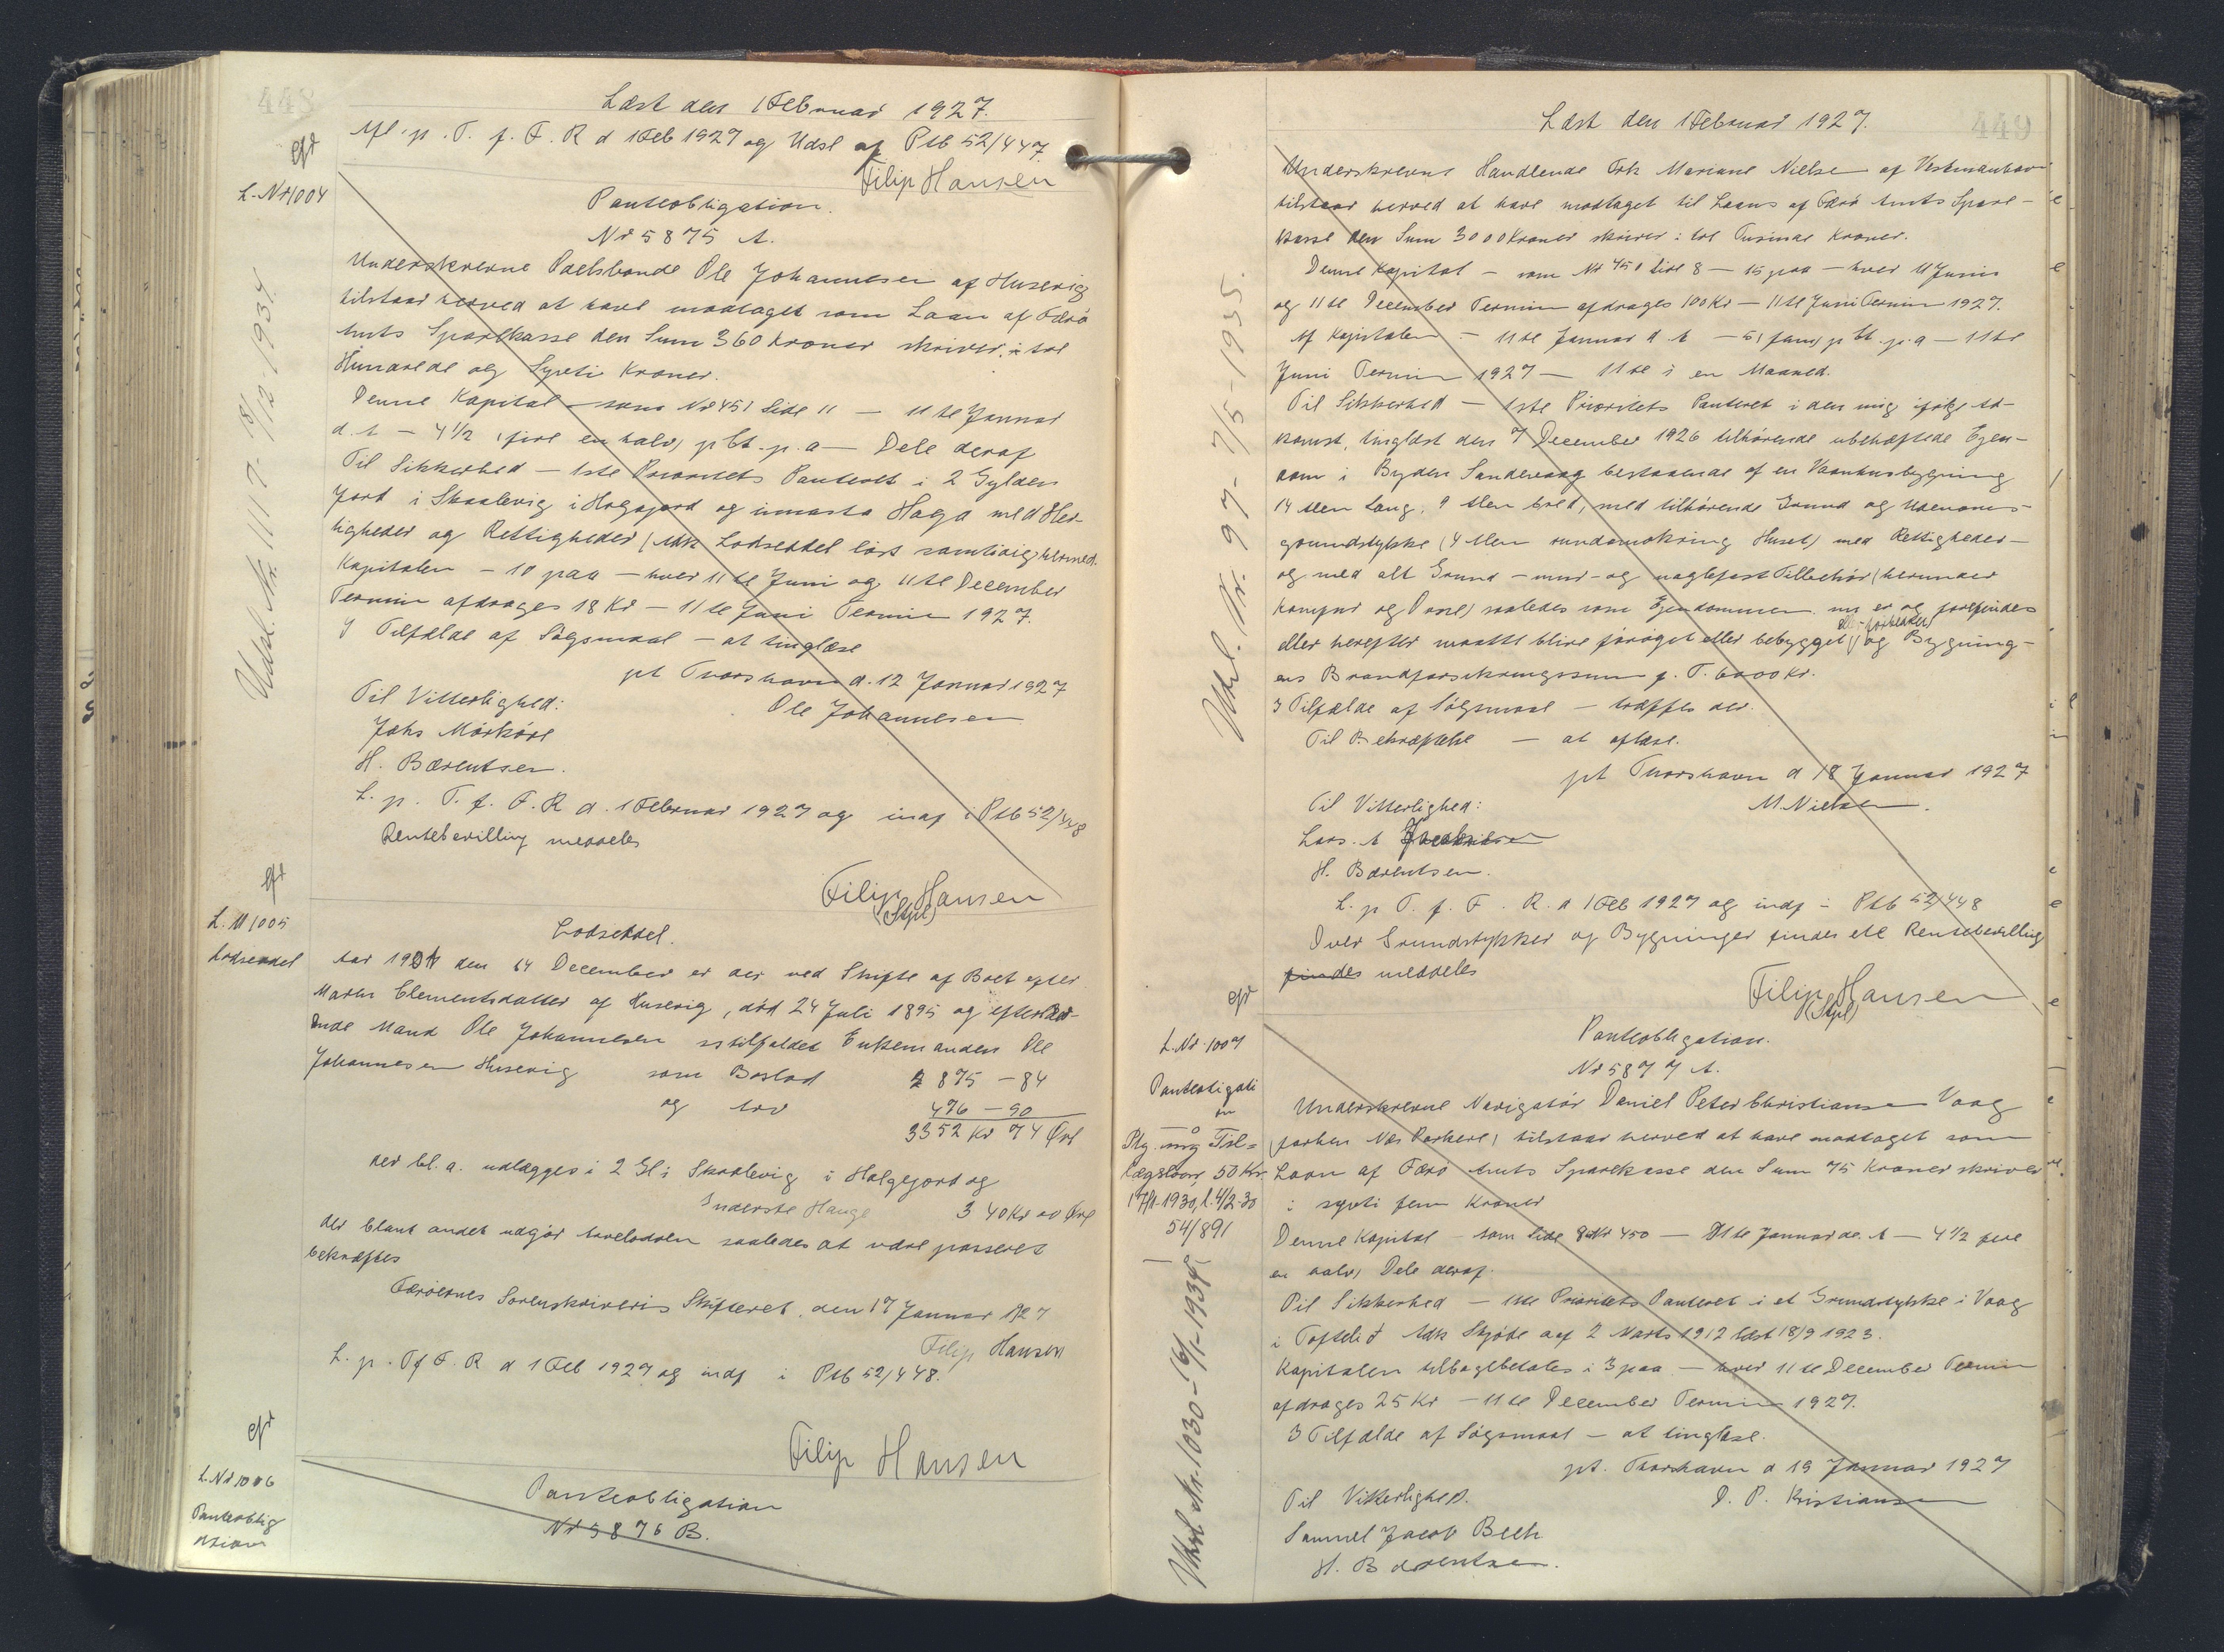 448
Læst den 1 Februar 1927.
Afl. p. T. f. F. R d 1 Feb 1927 og Udsl af Ptb 52/447.
Filip Hansen
L-Nr 1004
Panteobligation.
Nr 5875 A.
Underskrevne Odelsbonde Ole Johannesen af Husevig
tilstaar herved at have modtaget som Laan af Færø
Amts Sparekasse den Sum 360 Kroner skriver: tre
Hundrede og Syvti Kroner.
Denne Kapital - som Nr 451 Side 11 — 11te Januar
d. A — 4½ (fire en halv) pCt. p. a — Dele deraf
Til Sikkerhed — 1ste Prioritets Panteret i 2 Gylden
Jord i Skaalevig i Holgajord og innasta Haga med Her-
ligheder og Rettigheder (Adk Lodseddel læst samtidig hermed.
Kapitalen — 10 paa — hver 11te Juni og 11te December
Termin afdrages 18 Kr — 11te Juni Termin 1927.
I Tilfælde af Søgsmaal — at tinglæse
pt Thorshavn d. 12 Januar 1927
Ole Johannesen
Til Vitterlighed:
Johs Mørkøre
H. Bærentsen.
L. p. T. f. F. R d. 1 Februar 1927 og indf i Ptb 52/448
Rentebevilling meddeles
Filip Hansen
(Stpl)
Udsl. Nr. 1117 - 18/12-1934.
L. Nr 1005
Lodseddel
Lodseddel.
Aar 1901 den 14 December er der ved Skifte af Boet efter
Maren Clementsdatter af Husevig, død 24 Juli 1895 og efterlev-
ende Mand Ole Johannesen tilfaldet Enkemanden Ole
Johannesen Husevig som Boslod 2875 - 84
og Arv 476 - 90
3352 Kr 74 Øre
der bl. a. udlægges i 2 Gl i Skaalevig i Halgejord og
Inderste Hauge 340 Kr 00 Øre
der blant andet udgør Arvelodden saaledes at være passeret
bekræftes
Færøernes Sorenskriveris Skifteret, den 17 Januar 1927
Filip Hansen
L. p. T f F. R d 1 Feb 1927 og indf i Ptb 52/448.
Filip Hansen
L. Nr 1006
Panteoblig
ation
Panteobligation
Nr 5876 B.
449
Læst den 1 Februar 1927.
Underskrevne Handlende Frk Mariane Nielsen af Vestmanhavn
tilstaar herved at have modtaget til Laans af Færø Amts Spare-
kasse den Sum 3000 Kroner skriver: tre Tusinde Kroner.
Denne Kapital — som Nr 451 Side 8 — 15 paa — hver 11 Juni
og 11te December Termin afdrages 100 Kr — 11te Juni Termin 1927.
Af Kapitalen — 11te Januar d. A — 5 (fem) pCt. p. a — 11te
Juni Termin 1927 — 11te i en Maaned.
Til Sikkerhed — 1ste Prioritets Panteret i den mig ifølge Ad-
komst, tinglæst den 7 December 1926 tilhørende ubehæftede Ejen-
dom i Bygden Sandevaag bestaaende af en Vaanhusbygning
14 Alen lang, 9 Alen bred, med tilhørende Grund og Udenoms-
grundstykke (4 Alen rundomkring Huset) med Rettigheder —
og med alt Grund - mur - og naglefast Tilbehør (herunder
Komfur og Ovne) saaledes som Ejendommen nu er og forefindes
eller herefter maatte blive forøget eller bebygget eller forbedret og Bygning-
ens Brandforsikringssum p. T. 6000 Kr.
I Tilfælde af Søgsmaal — træffes der.
Til Bekræftelse — at aflæse.
pt Thorshavn d 18 Januar 1927
M. Nielsen.
Til Vitterlighed:
Lars. A
H. Bærentsen.
L. p T. f. F. R. d 1 Feb 1927 og indf i Ptb 52/448
Over Grundstykker og Bygninger findes ell Rentebevilling
findes meddeles
Filip Hansen
(Stpl)
Udsl. Nr. 97 - 7/5-1935.
L. Nr. 1007
Panteobligati
on
50 Kr.
17/1-1930, l. 4/2-30
54/891
Udsl Nr. 1030 - 16/1-1934
Panteobligation.
Nr 5877 A.
Underskrevne Navigatør Daniel Peter Christiansen Vaag
(forhen Næs Porkere) tilstaar herved at have modtaget som
Laan af Færø Amts Sparekasse den Sum 75 Kroner skriver
: syvti fem Kroner
Denne Kapital — som Side 9 Nr 450 — 11te Januar d. A — 4½ fire
en halv) Dele deraf.
Til Sikkerhed — 1ste Prioritets Panteret i et Grundstykke i Vaag
i Toftelid Adk Skjøde af 2 Marts 1912 læst 18/9 1923.
Kapitalen tilbagebetales i 3 paa — hver 11te December Termin
afdrages 25 Kr — 11te December Termin 1927.
I Tilfælde af Søgsmaal — at tinglæse.
pt. Thorshavn d 19 Januar 1927
D. P. Kristiansen
Til Vitterlighed.
Samuel Jacob Bech
H. Bærentsen.